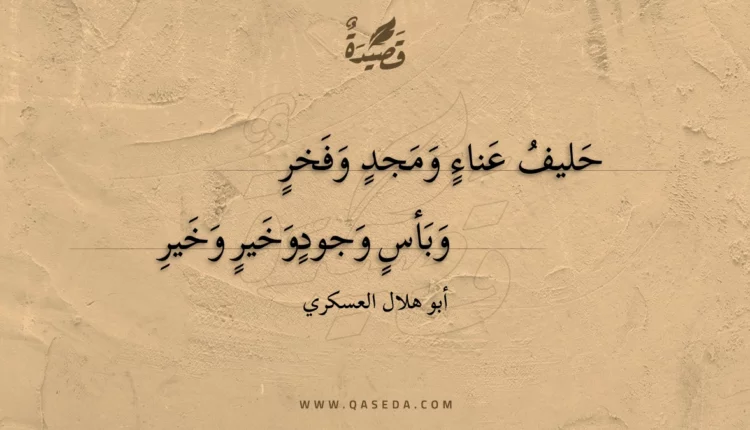 قَصِيدَةٌ
حَليفُ عَناءٍ وَمَجدٍ وَفَخرٍ
وَبَأسٍ وَجودٍوَخَيرٍ وَخَيرِ
أبو هلال العسكري
WWW.QASEDA.COM